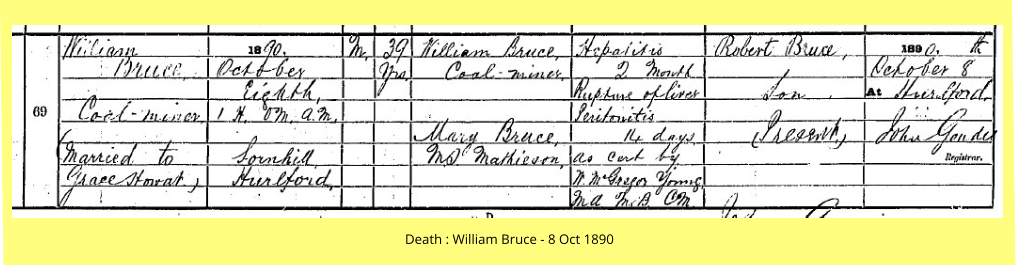 69
William
Bruce,
Coal-miner
(Married to
Grace Howat)
1890.
October
Eighth,
1 H. 0 M. A.M.
Sornhill
Hurlford,
M.
39
Yrs.
William Bruce,
Coal-miner,
Mary Bruce,
M.S. Mathieson,
Hepatitis
2 Month
Rupture of liver
Peritonitis
14 days
as cert by
W. McGregor Young
M.A. M.B. C.M
Robert Bruce,
Son
(Present)
1890.
October 8th
At Hurlford.
John
Registrar.
Death : William Bruce - 8 Oct 1890